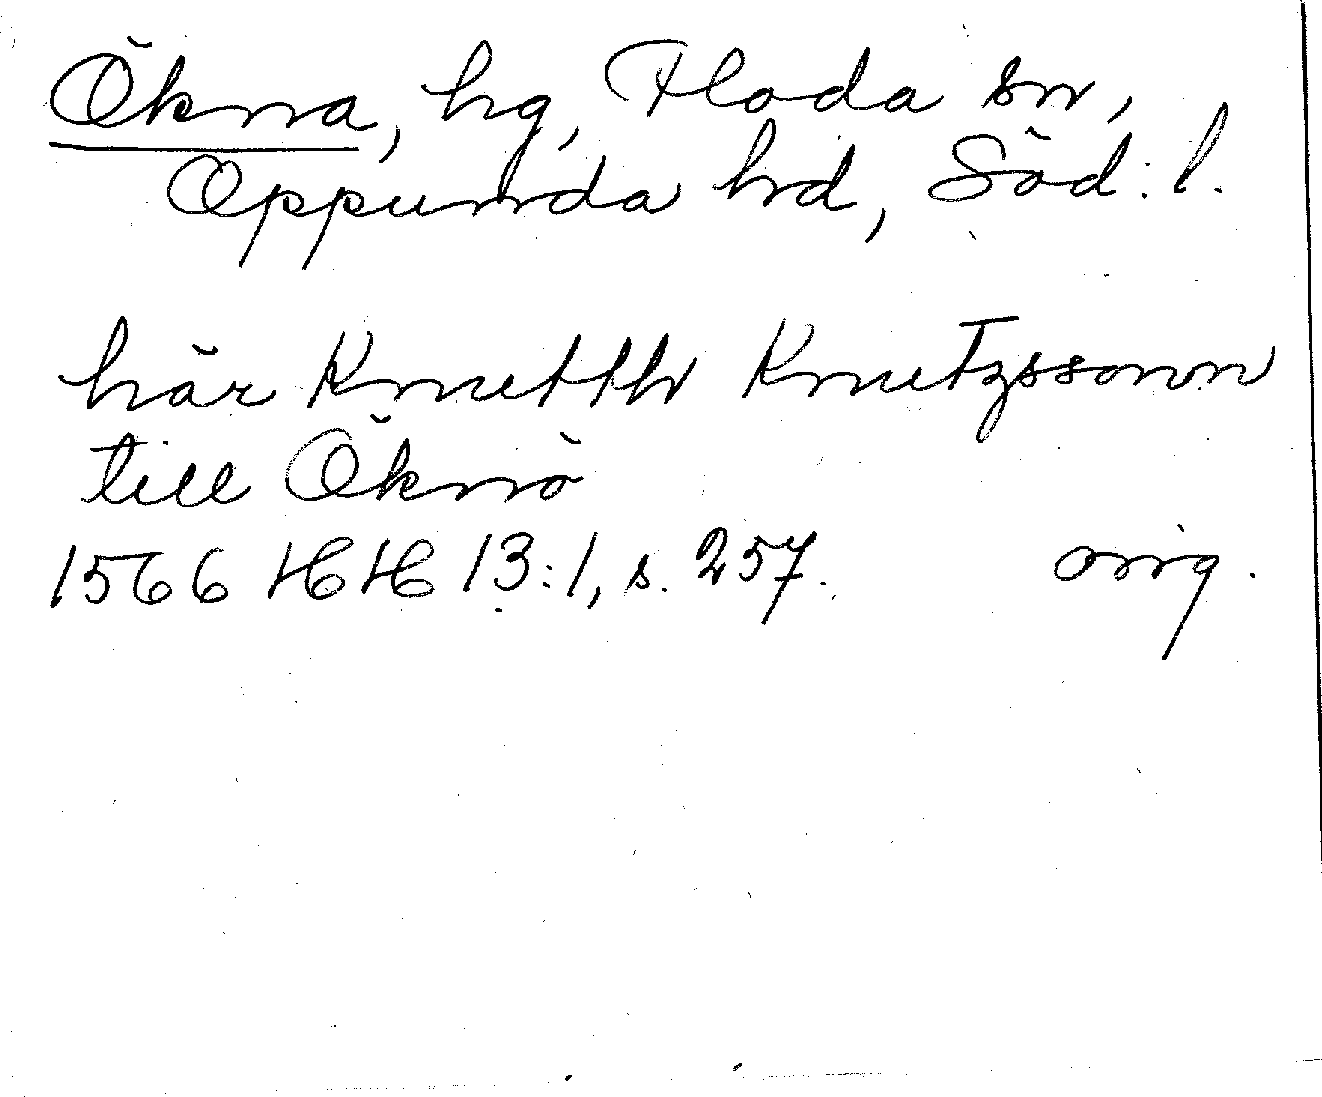 Ökna, hg, Floda sn,
Oppunda hd, Söd. l.
här Knutth Knutzssonn
till Öknö
1566 HH 13:1, s. 257. orig.